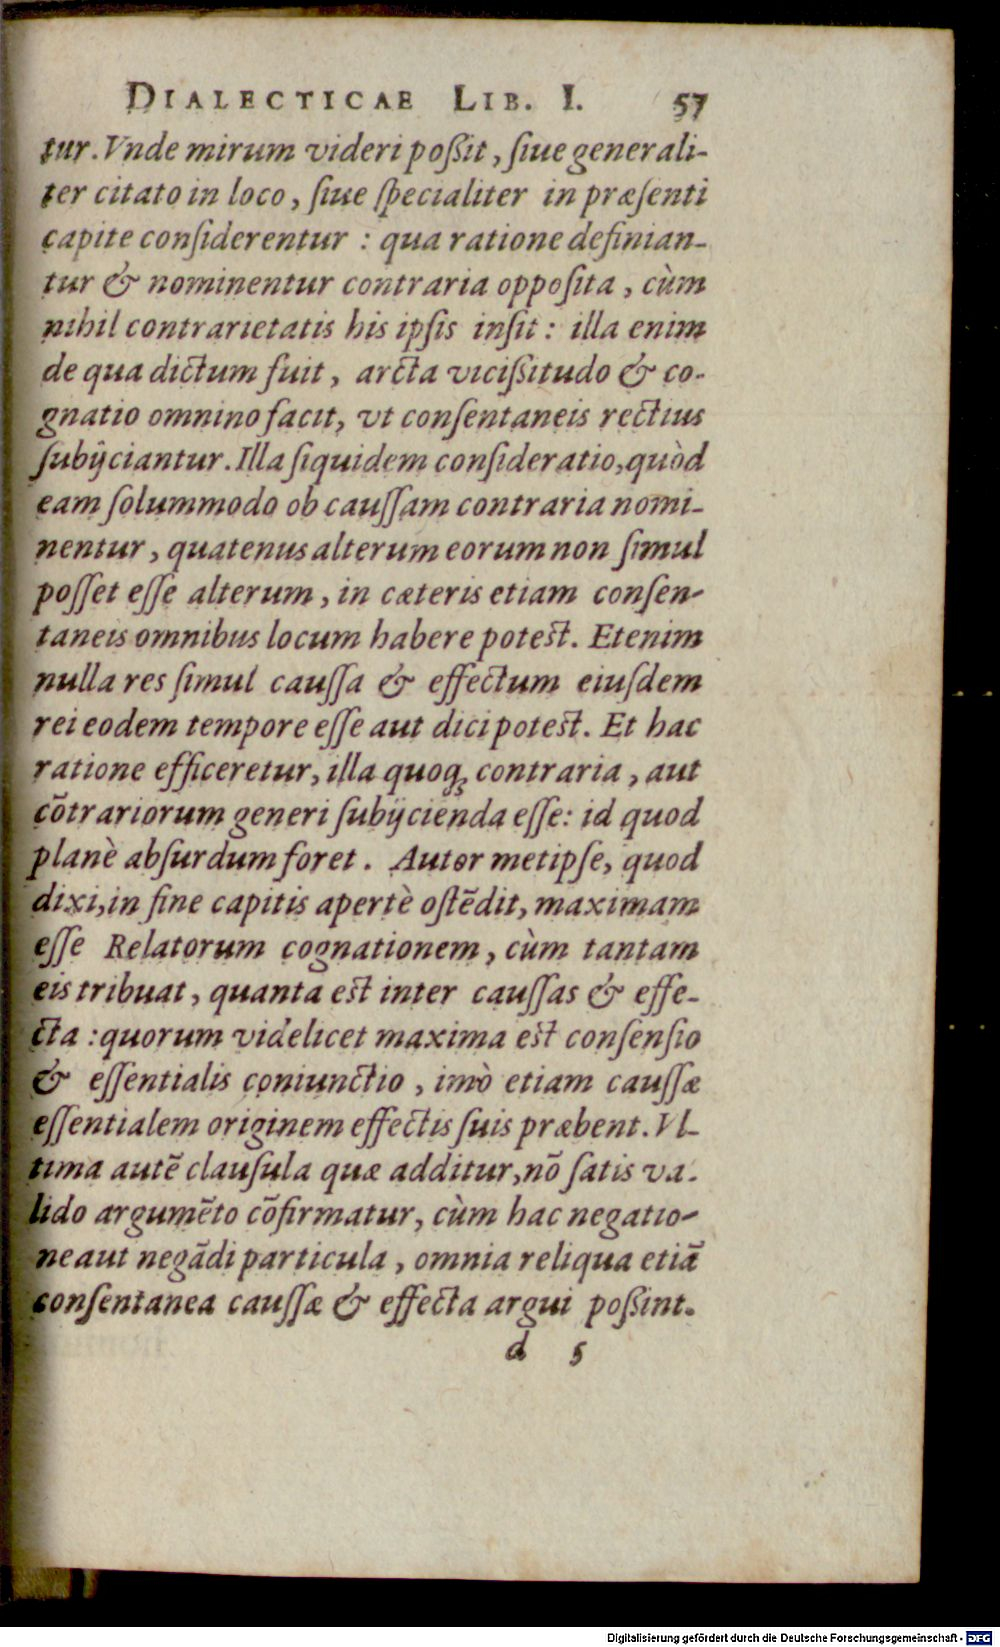 DIALECTICAE LIB. I. 57
tur. Vnde mirum videri poßit, ſiue generali-
ter citato in loco, ſiue ſpecialiter in præſenti
capite conſiderentur : qua ratione definian-
tur & nominentur contraria oppoſita, cùm
nihil contrarietatis his ipſis inſit : illa enim
de qua dictum fuit, arcta vicißitudo & co-
gnatio omnino facit, vt conſentaneis rectius
ſubijciantur. Illa ſiquidem conſideratio, quòd
eam ſolummodo ob cauſſam contraria nomi-
nentur, quatenus alterum eorum non ſimul
poſſet eſſe alterum, in cæteris etiam conſen-
taneis omnibus locum habere poteſt. Etenim
nulla res ſimul cauſſa & effectum eiuſdem
rei eodem tempore eſſe aut dici poteſt. Et hac
ratione efficeretur, illa quoq; contraria, aut
cõtrariorum generi ſubijcienda eſſe: id quod
planè abſurdum foret. Autor metipſe, quod
dixi, in fine capitis apertè oſtẽdit, maximam
eſſe Relatorum cognationem, cùm tantam
eis tribuat, quanta eſt inter cauſſas & effe-
cta : quorum videlicet maxima eſt conſenſio
& eſſentialis coniunctio, imò etiam cauſſæ
eſſentialem originem effectis ſuis præbent. Vl-
tima autẽ clauſula quæ additur, nõ ſatis va-
lido argumẽto cõfirmatur, cùm hac negatio-
ne aut negãdi particula, omnia reliqua etiã
conſentanea cauſſæ & effecta argui poßint.
d 5
Digitalisierung gefördert durch die Deutsche Forschungsgemeinschaft - DFG